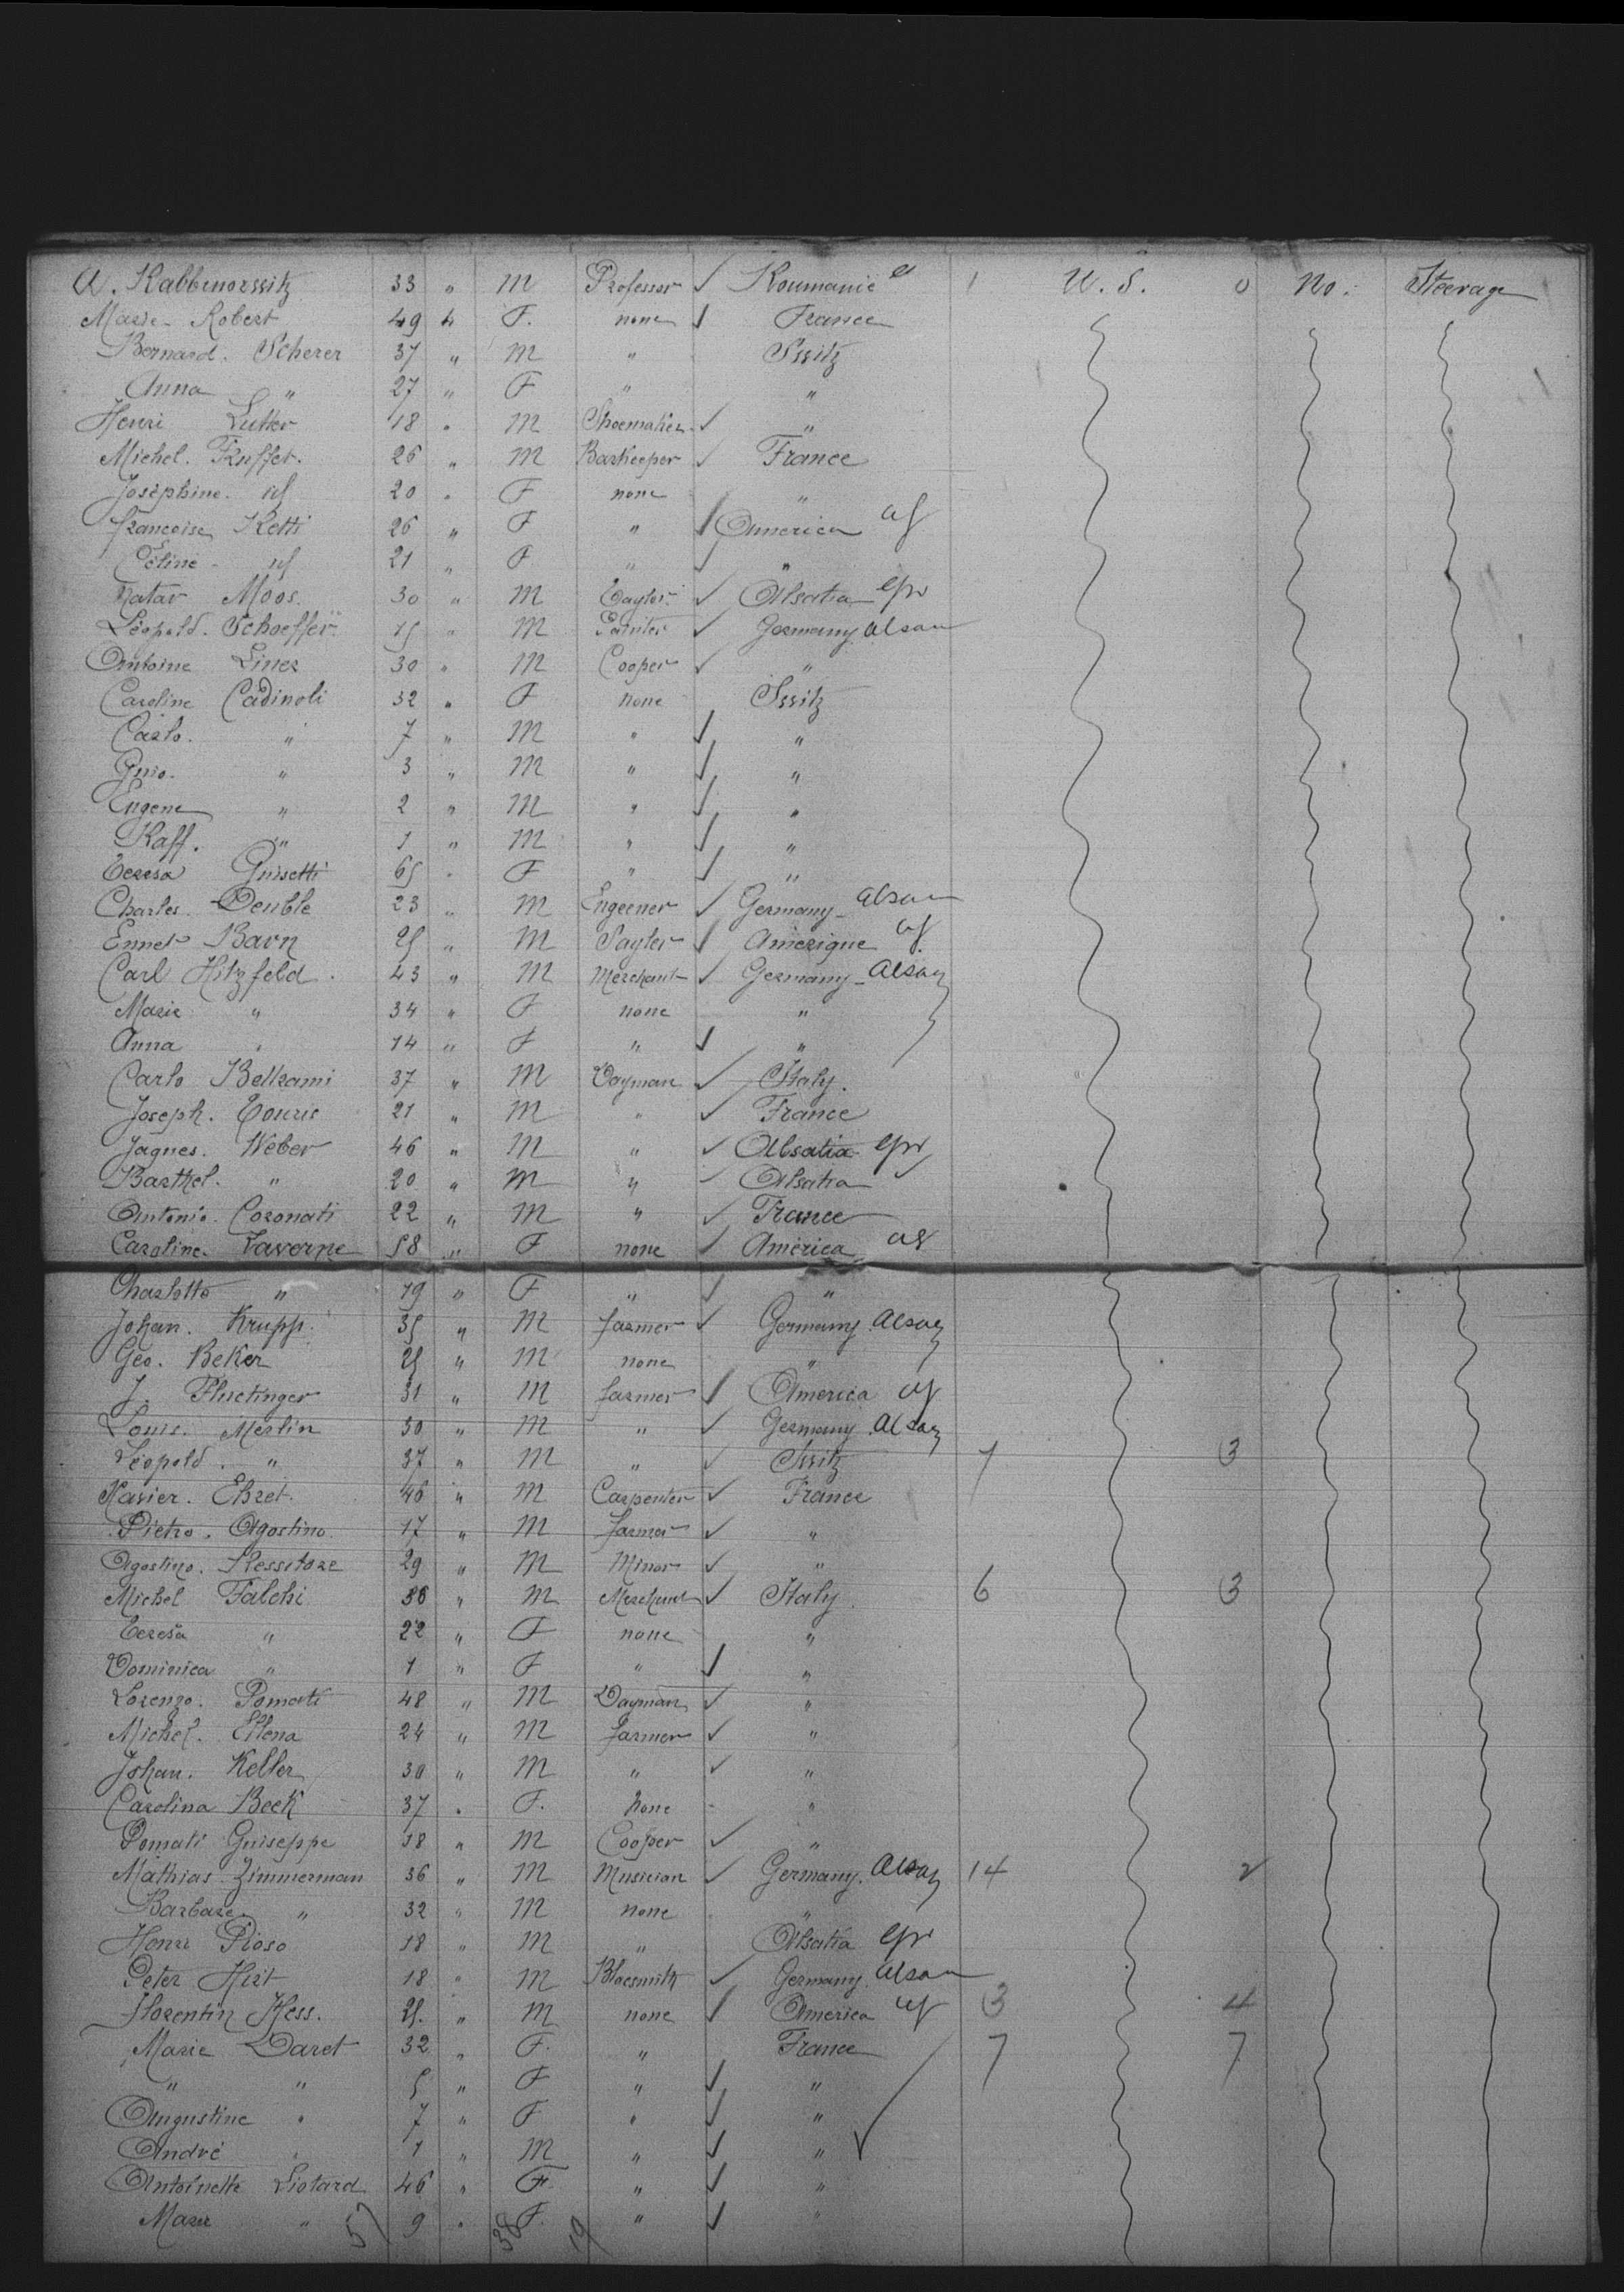 A. Kabbinorssitz 33 " M Professor ✓ Roumanie 1 U. S. 0 No. Steerage
Marie Robert 49 " F. none ✓ France
Bernard. Scherer 37 " M " Sssitz
Anna " 27 " F " "
Henri Lutter 18 " M Shoemaker ✓ "
Michel. Kuffer. 26 " M Barkeeper ✓ France
Joséphine. id 20 " F none "
Francoise Ketti 26 " F " ✓ America
Céline id 21 " F " ✓ "
Natar Moos. 30 " M Taylor ✓ Alsatia
Léopold. Schoeffer 15 " M Painter ✓ Germany
Antoine Liner 30 " M Cooper ✓ "
Caroline Cadinoli 32 " F none Sssitz
Carlo. " 7 " M " ✓ "
Gnio. " 3 " M " ✓ "
Eugene " 2 " M " ✓ "
Raff. " 1 " M " ✓ "
Teresa Guisetti 65 " F " ✓ "
Charles. Deuble 23 " M Engeener ✓ Germany
Ennet Bavn 25 " M Tayler ✓ Amerique
Carl Hitzfeld 43 " M Merchant ✓ Germany
Marie " 34 " F none "
Anna " 14 " F " ✓ "
Carlo Beltrami 37 " M Dayman ✓ Italy.
Joseph. Touric 21 " M " ✓ France
Jagnes. Weber 46 " M " ✓ Alsatia
Barthel. " 20 " M " ✓ Alsatia
Antonio. Coronati 22 " M " ✓ France
Caroline. Laverne 58 " F none ✓ America
Charlotte " 19 " F " ✓ "
Johan. Krupp. 35 " M farmer ✓ Germany
Geo. Beker 25 " M none "
J. Fluetinger 31 " M farmer ✓ America
Louis. Merlin 30 " M " ✓ Germany
Léopold. " 37 " M " ✓ Sssitz 1 3
Xavier. Ehret. 46 " M Carpenter ✓ France
Pietro. Agostino. 17 " M farmer ✓ "
Agostino. Ressitore 29 " M Minor ✓ "
Michel Falchi 36 " M Merchant ✓ Italy 6 3
Teresa " 22 " F none "
Dominica " 1 " F " ✓ "
Lorenzo. Pomati 48 " M Dayman ✓ "
Michel. Ellena 24 " M farmer ✓ "
Johan. Keller 30 " M " ✓ "
Carolina Beck 37 " F. none "
Pomati Guiseppe 18 " M Cooper ✓ "
Mathias Zimmerman 36 " M Musician ✓ Germany 14 2
Barbare " 32 " M none "
Henri Pioso 18 " M " Alsatia
Peter Hirt 18 " M Blacsmith ✓ Germany
Florentin Hess. 25. " M none ✓ America 3 4
Marie Daret 32 " F. " France 7 7
" " 5 " F " ✓ "
Augustine " 7 " F " ✓ "
André " 1 " M " ✓ "
Antoinette Liotard 46 " F. " ✓ "
Marie " 9 " F. " ✓ "
57 38 19